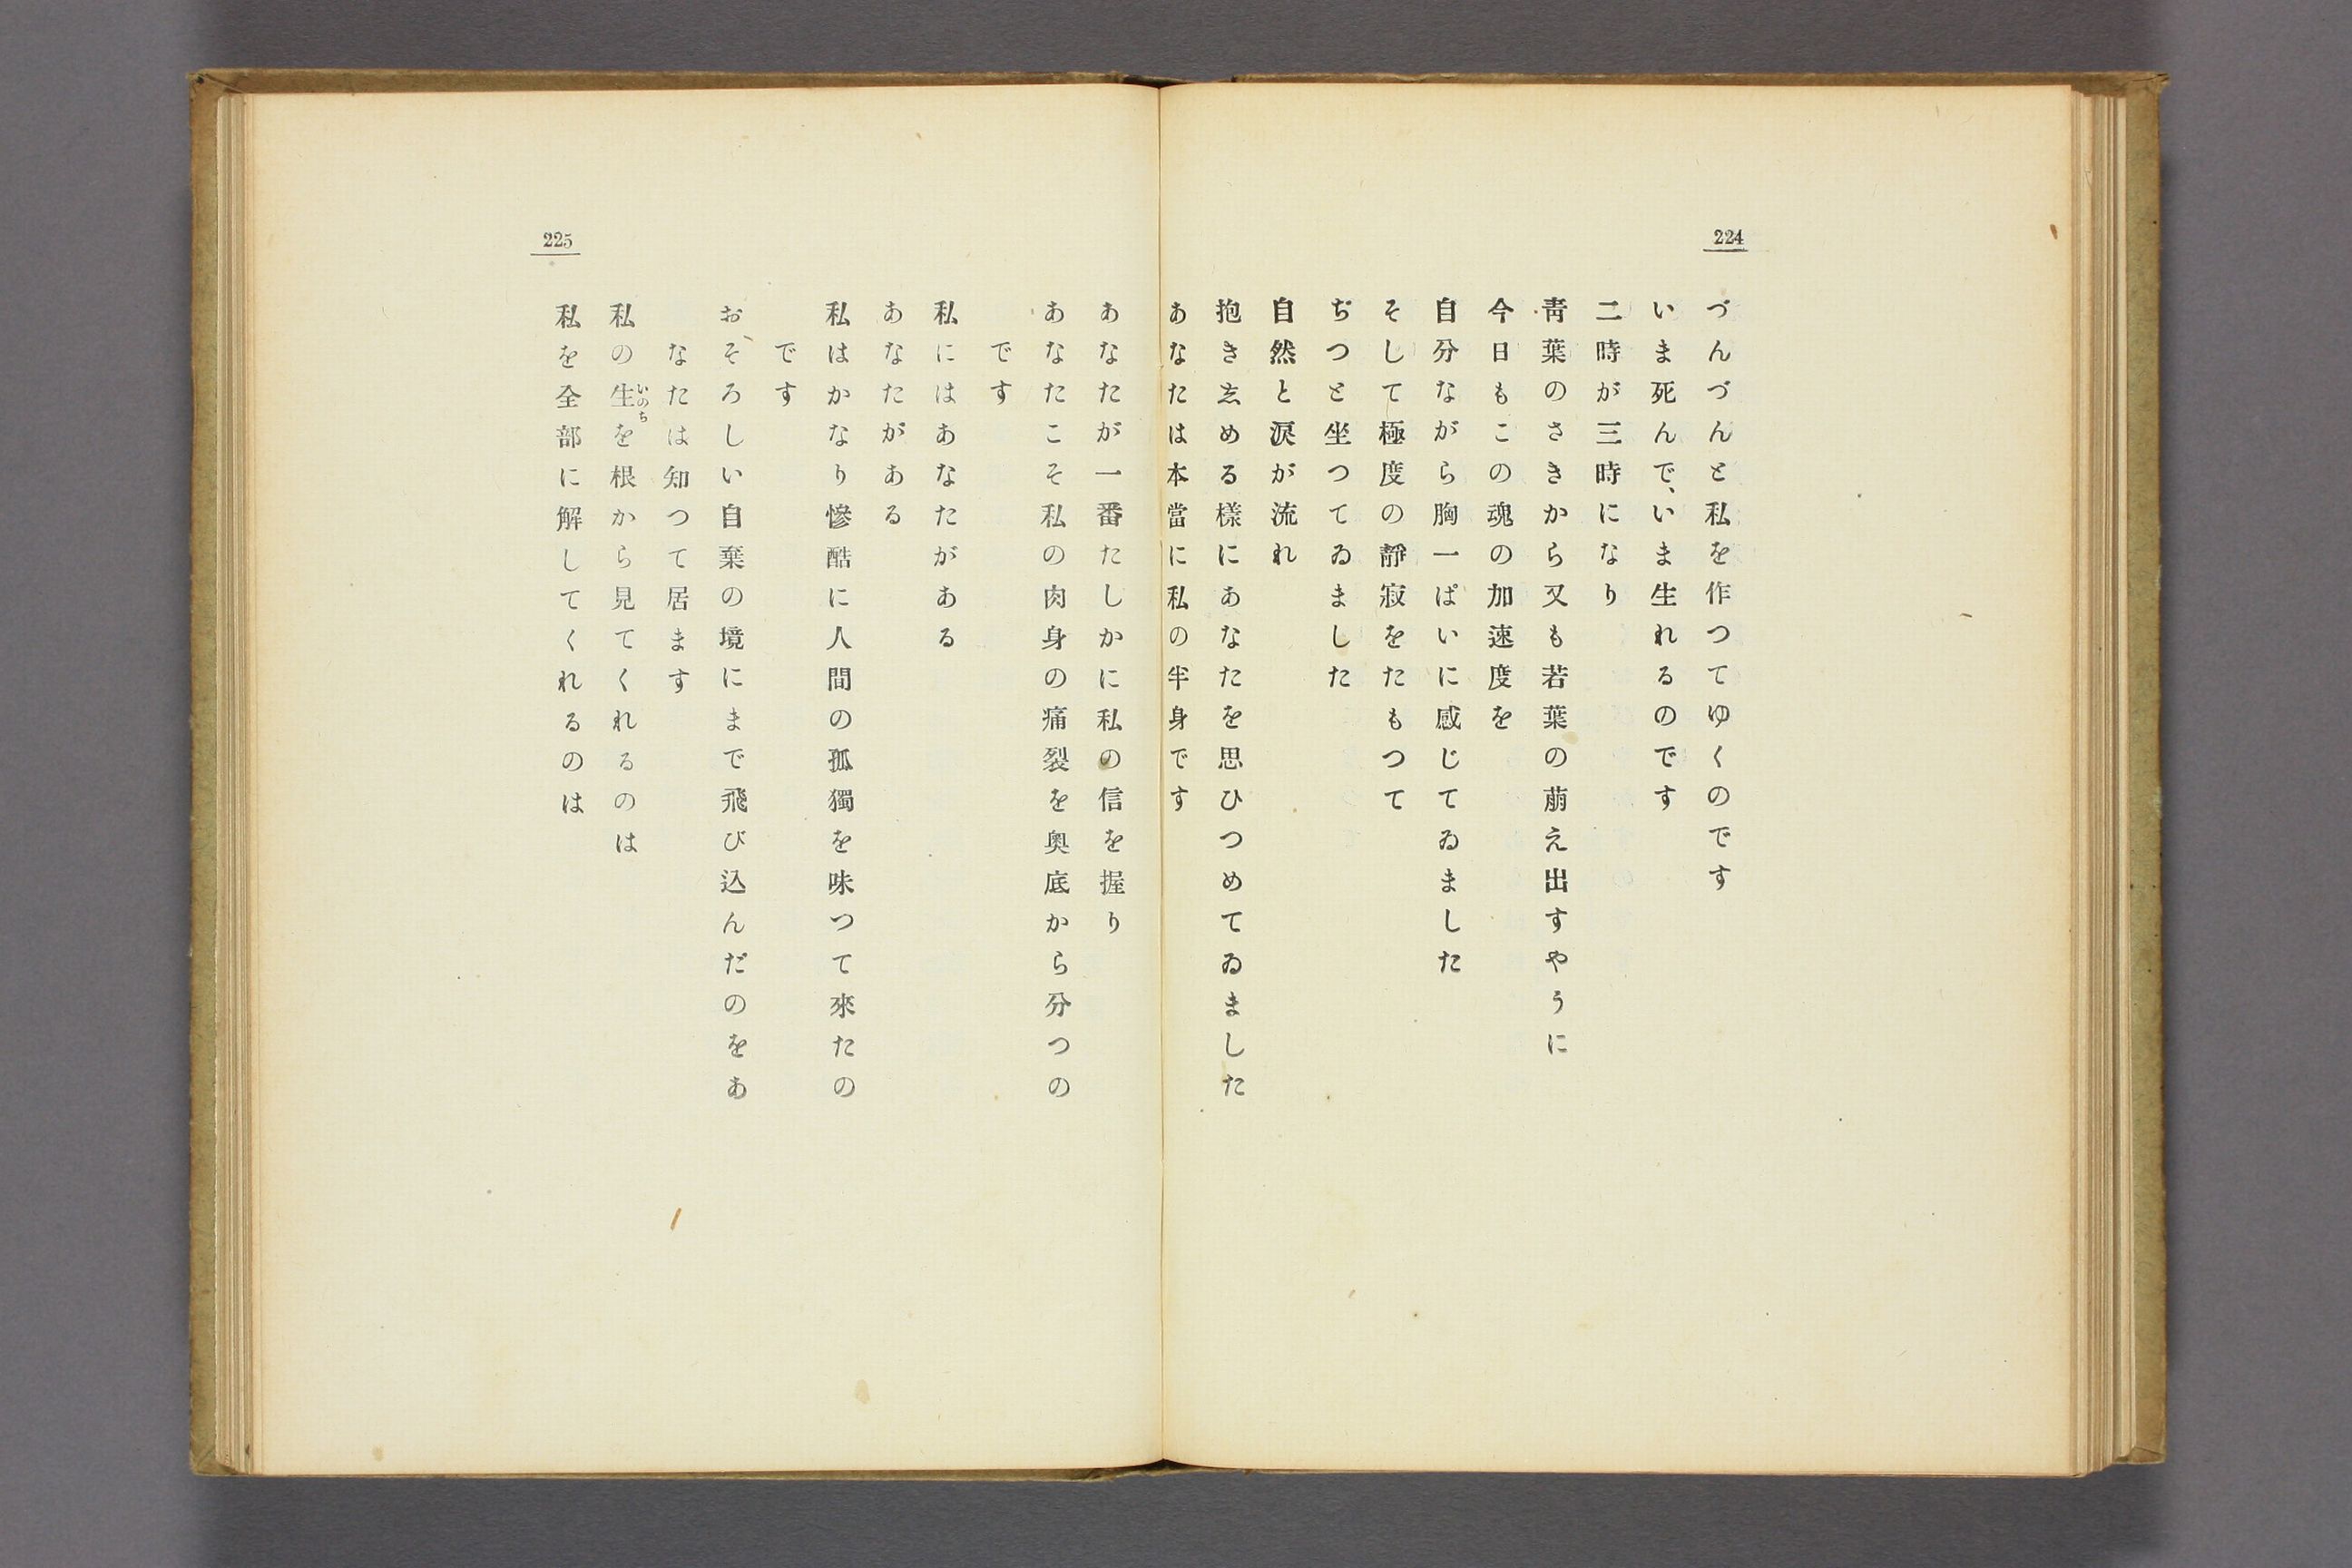 224
づんづんと私を作つてゆくのです
いま死んで、いま生れるのです
二時が三時になり
靑葉のさきから又も若葉の萠え出すやうに
今日もこの魂の加速度を
自分ながら胸一ぱいに感じてゐました
そして極度の靜寂をたもつて
ぢつと坐つてゐました
自然と淚が流れ
抱きゑめる樣にあなたを思ひつめてゐました
あなたは本當に私の半身です
225
あなたが一番たしかに私の信を握り
あなたこそ私の肉身の痛裂を奧底から分つの
です
私にはあなたがある
あなたがある
私はかなり慘酷に人間の孤獨を味つて來たの
です
おそろしい自棄の境にまで飛び込んだのをあ
なたは知つて居ます
私の生いのちを根から見てくれるのは
私を全部に解してくれるのは